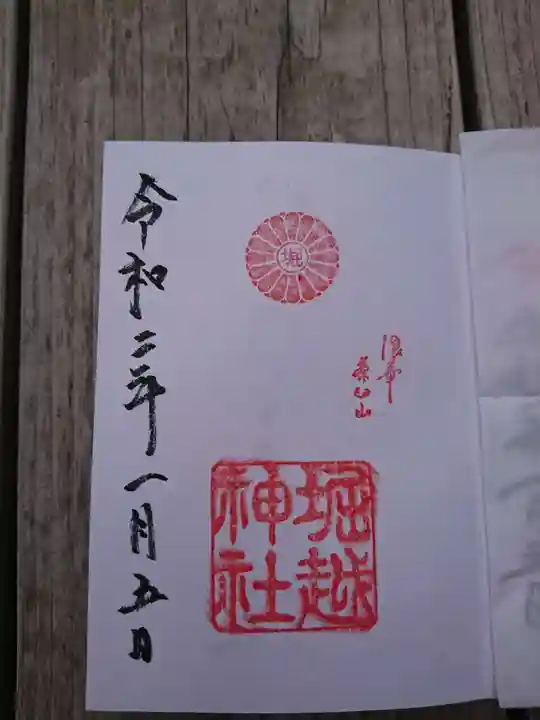 堀
浪華
茶臼山
堀越
神社
令和二年一月五日